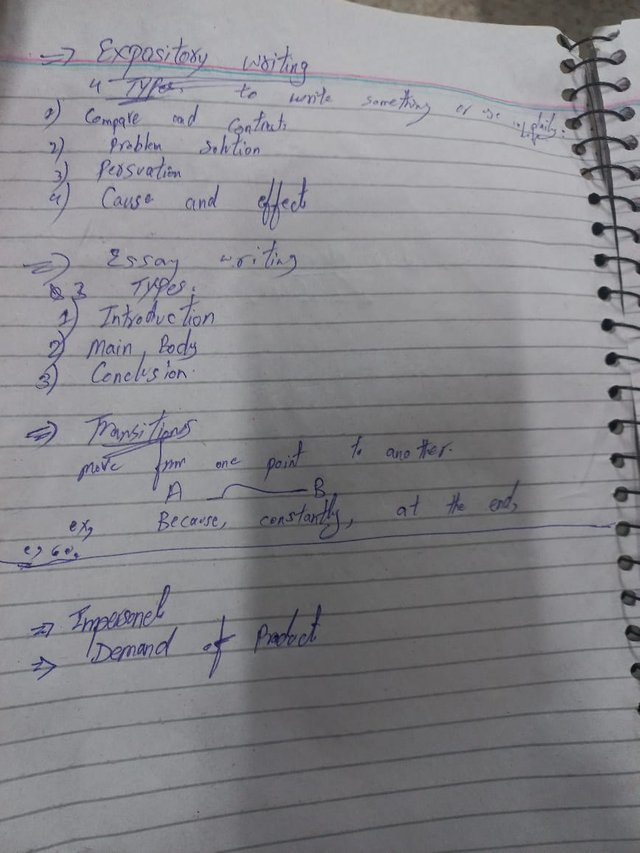 => Expository writing
4 Types. to write something or
1) Compare and Contrast
2) Problem Solution
3) Persuation
4) Cause and effect
=> Essay writing
3 Types:
1) Introduction
2) Main Body
3) Conclusion.
=> Transitions
move from one point to another.
A B
ex, Because, constantly, at the end,
=> Impersonel
=> Demand of Product